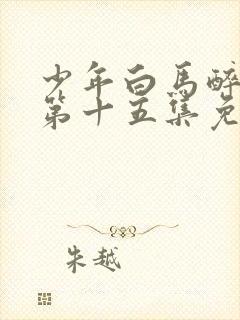 少年白馬醉
第十五集免
朱越